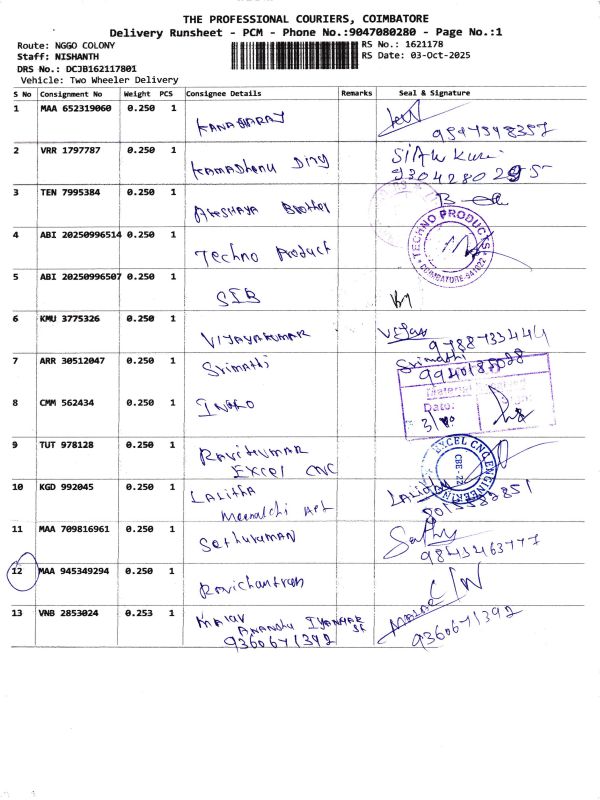 THE PROFESSIONAL COURIERS, COIMBATORE
Delivery Runsheet - PCM - Phone No.:9047080280 - Page No.:1
Route: NGGO COLONY RS No.: 1621178
Staff: NISHANTH RS Date: 03-Oct-2025
DRS No.: DCJB162117801
Vehicle: Two Wheeler Delivery
S No Consignment No Weight PCS Consignee Details Remarks Seal & Signature
1 MAA 652319060 0.250 1
2 VRR 1797787 0.250 1 Kamadhenu
3 TEN 7995384 0.250 1 Akshaya
TECHNO PRODUCTS
COIMBATORE-641022
4 ABI 20250996514 0.250 1 Techno Product
5 ABI 20250996507 0.250 1 SIB
6 KMU 3775326 0.250 1 Vijayakumar
9788733444
7 ARR 30512047 0.250 1 Srimathi Srimathi
Material
Date:
8 CMM 562434 0.250 1
9 TUT 978128 0.250 1 Ravikumar
EXCEL CNC
EXCEL CNC ENGINEERING
CBE-22
10 KGD 992045 0.250 1 Lalitha Lalitha
11 MAA 709816961 0.250 1 Sathuraman
9843463777
12 MAA 945349294 0.250 1
13 VNB 2853024 0.253 1
9360671392 9360671392